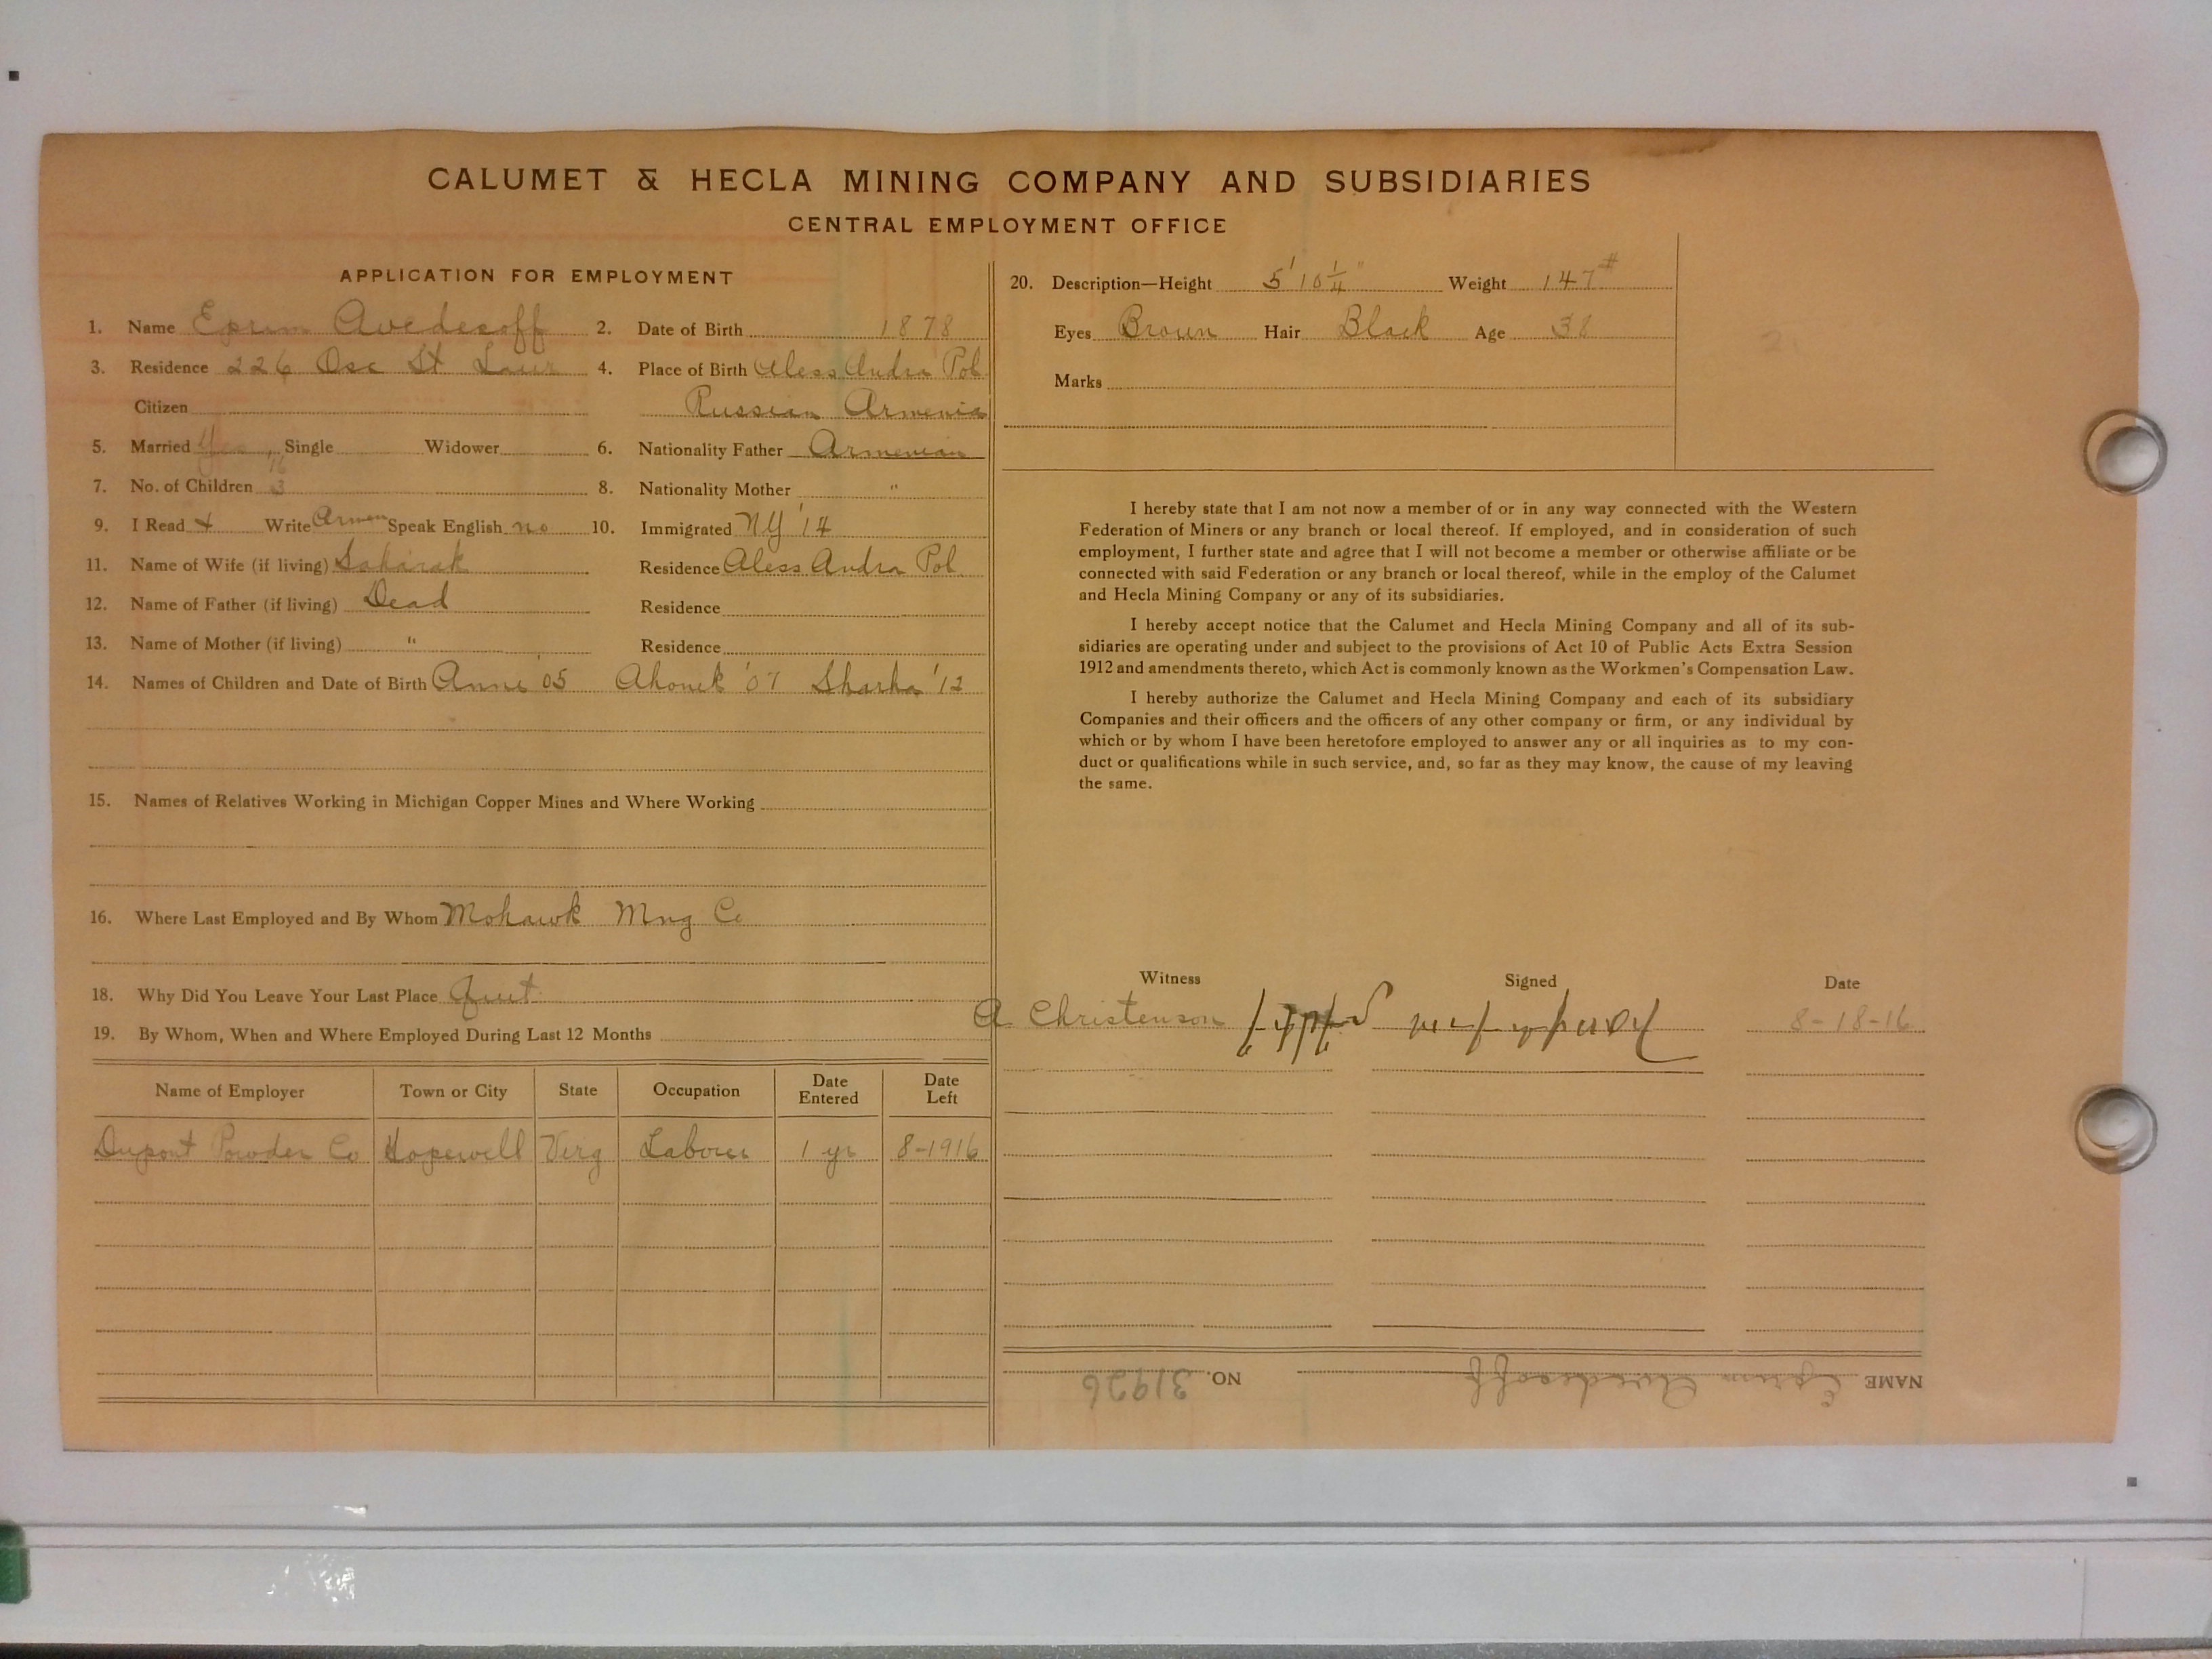 CALUMET & HECLA MINING COMPANY AND SUBSIDIARIES
CENTRAL EMPLOYMENT OFFICE
APPLICATION FOR EMPLOYMENT
1. Name Eprim Avedesoff 2. Date of Birth 1878
3. Residence 226 Osc St Laur 4. Place of Birth AlessAndra Pol
Citizen Russian Armenia
5. Married Yes Single Widower 6. Nationality Father Armenian
7. No. of Children 3 8. Nationality Mother "
9. I Read + Write Armen Speak English no 10. Immigrated NY '14
11. Name of Wife (if living) Residence AlessAndra Pol
12. Name of Father (if living) Dead Residence
13. Name of Mother (if living) " Residence
14. Names of Children and Date of Birth Anni '05 '07 '12
15. Names of Relatives Working in Michigan Copper Mines and Where Working
16. Where Last Employed and By Whom Mohawk Mng Co
18. Why Did You Leave Your Last Place Quit
19. By Whom, When and Where Employed During Last 12 Months
Name of Employer Town or City State Occupation Date Entered Date Left
Dupont Powder Co Hopewell Virg Labour 1 yr 8-1916
20. Description—Height 5' 10 1/4" Weight 147#
Eyes Brown Hair Black Age 38
Marks
I hereby state that I am not now a member of or in any way connected with the Western
Federation of Miners or any branch or local thereof. If employed, and in consideration of such
employment, I further state and agree that I will not become a member or otherwise affiliate or be
connected with said Federation or any branch or local thereof, while in the employ of the Calumet
and Hecla Mining Company or any of its subsidiaries.
I hereby accept notice that the Calumet and Hecla Mining Company and all of its sub-
sidiaries are operating under and subject to the provisions of Act 10 of Public Acts Extra Session
1912 and amendments thereto, which Act is commonly known as the Workmen's Compensation Law.
I hereby authorize the Calumet and Hecla Mining Company and each of its subsidiary
Companies and their officers and the officers of any other company or firm, or any individual by
which or by whom I have been heretofore employed to answer any or all inquiries as to my con-
duct or qualifications while in such service, and, so far as they may know, the cause of my leaving
the same.
Witness Signed Date
A Christenson 8-18-16
NAME Eprim Avedesoff NO. 31926